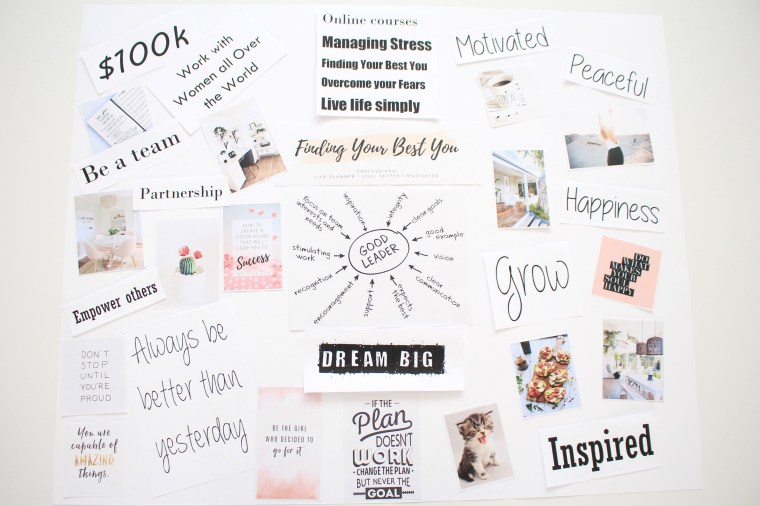 $100k
Work with
Women all Over
the World
Online courses
Managing Stress
Finding Your Best You
Overcome your Fears
Live life simply
Motivated
Peaceful
Be a team
Finding Your Best You
PROFESSIONAL
Partnership
Happiness
HOW TO
CREATE A
VISION BOARD
THAT WILL
LEAD YOU TO
Success
focus on team
interests and
needs
inspiration
integrity
clear goals
good
example
vision
clear
communication
expects
the best
support
encouragement
recognition
stimulating
work
GOOD
LEADER
Grow
DO
WHAT
MAKES
YOUR
SOUL
HAPPY
Empower others
DON'T
STOP
UNTIL
YOU'RE
PROUD
Always be
better than
yesterday
DREAM BIG
You are
capable of
AMAZING
things.
BE THE GIRL
WHO DECIDED TO
go for it
IF THE
Plan
DOESN'T
WORK
CHANGE THE PLAN
BUT NEVER THE
GOAL
Inspired